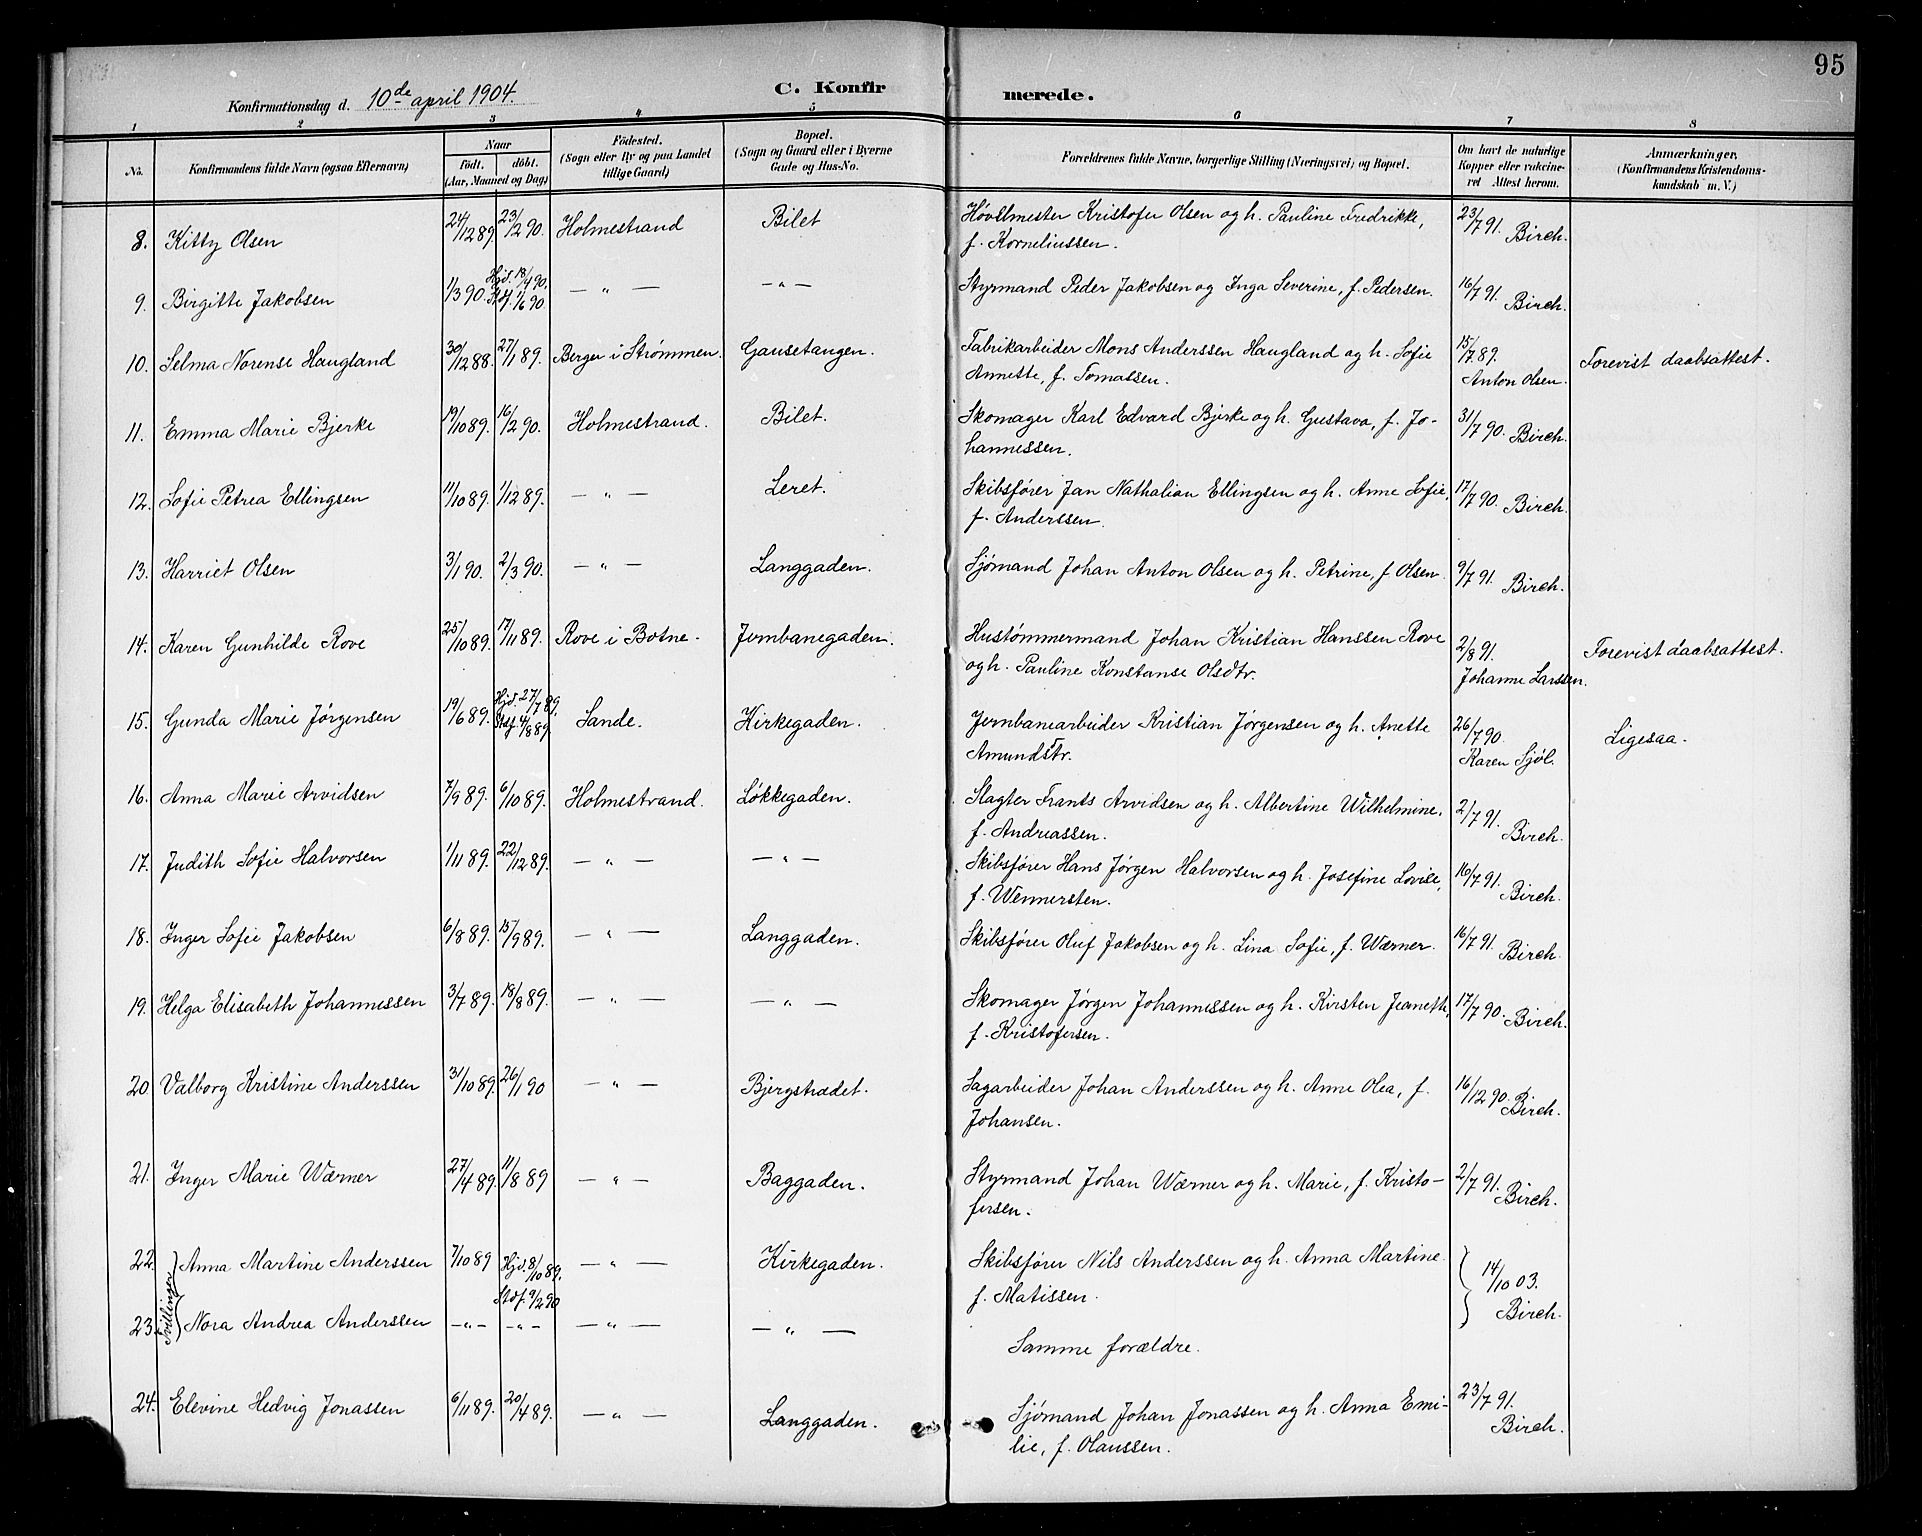 95
Konfirmationsdag d. 10de april 1904.
C. Konfirmerede.
1 2 3 4 5 6 7 8
No. Konfirmandens fulde Navn (ogsaa Efternavn) Naar födt. döbt. (Aar, Maaned og Dag) Födested. (Sogn eller By og paa Landet tillige Gaard) Bopæl. (Sogn og Gaard eller i Byerne Gade og Hus-No. Forældrenes fulde Navne, borgerlige Stilling (Næringsvei) og Bopæl. Om havt de naturlige Kopper eller vaccineret Attest herom. Anmærkninger. (Konfirmandens Kristendomskundskab m. V.)
8. Kitty Olsen 24/12 89. 23/2 90. Holmestrand Bilet Høvelmester Kristofer Olsen og h. Pauline Fredrikke, f. Korneliussen. 23/7 91. Birch.
9. Birgitte Jakobsen 1/3 90. Hjd. 18/4 90. Stdf. 1/6 90. — „ — — „ — Styrmand Peder Jakobsen og Inga Severine, f. Pedersen. 16/7 91. Birch.
10. Selma Norense Haugland 30/12 88. 27/1 89. Berger i Strømmen. Gausetangen. Fabrikarbeider Mons Anderssen Haugland og h. Sofie Annette, f. Tomassen. 15/7 89. Anton Olsen. Forevist daabsattest.
11. Emma Marie Bjerke 19/10 89. 16/2 90. Holmestrand. Bilet. Skomager Karl Edvard Bjerke og h. Gustava, f. Johannessen. 31/7 90. Birch.
12. Sofie Petrea Ellingsen 11/10 89. 1/12 89. — „ — Leret. Skibsfører Jan Nathalian Ellingsen og h. Anne Sofie, f. Anderssen. 17/7 90. Birch.
13. Harriet Olsen 3/1 90. 2/3 90. — „ — Langgaden. Sjømand Johan Anton Olsen og h. Petrine, f. Olsen. 9/7 91. Birch.
14. Karen Gunhilde Rove 25/10 89. 17/11 89. Rove i Botne. Jernbanegaden. Hustømmermand Johan Kristian Hanssen Rove og h. Pauline Konstanse Olsdtr. 2/8 91. Johanne Larssen. Forevist daabsattest.
15. Gunda Marie Jørgensen 19/6 89. Hjd. 27/7 89. Stdf. 4/8 89. Sande. Kirkegaden. Jernbanearbeider Kristian Jørgensen og h. Anette Amundstr. 26/7 90. Karen Sjøl. Ligesaa.
16. Anna Marie Arvidsen 7/9 89. 6/10 89. Holmestrand. Løkkegaden. Slagter Frants Arvidsen og h. Albertine Wilhelmine, f. Andreassen. 2/7 91. Birch.
17. Judith Sofie Halvorsen 1/11 89. 22/12 89. — „ — — „ — Skibsfører Hans Jørgen Halvorsen og h. Josefine Lovise, f. Wennersten. 16/7 91. Birch.
18. Inger Sofie Jakobsen 6/8 89. 15/9 89. — „ — Langgaden. Skibsfører Oluf Jakobsen og h. Lina Sofie, f. Wærner. 16/7 91. Birch.
19. Helga Elisabeth Johannessen 3/7 89. 18/8 89. — „ — — „ — Skomager Jørgen Johannessen og h. Kirsten Jeaneth, f. Kristofersen. 17/7 90. Birch.
20. Valborg Kristine Anderssen 31/10 89. 26/1 90 — „ — Bjergstrædet. Sagarbeider Johan Anderssen og h. Anne Olea, f. Johansen. 16/12 90. Birch.
21. Inger Marie Wærner 27/4 89. 11/8 89 — „ — Baggaden. Styrmand Johan Wærner og h. Marie, f. Kristofersen. 2/7 91. Birch.
22. Tvillinger Anna Martine Anderssen 7/10 89 Hjd. 8/10 89. Stdf. 9/2 90 — „ — Kirkegaden. Skibsfører Nils Anderssen og h. Anna Martine f. Matissen. 14/10 03. Birch.
23. Nora Andrea Anderssen — „ — — „ — — „ — — „ — Samme forældre.
24. Elevine Hedvig Jonassen 6/11 89. 20/4 89. — „ — Langgaden. Sjømand Johan Jonassen og h. Anna Emilie, f. Olaussen. 23/7 91. Birch.